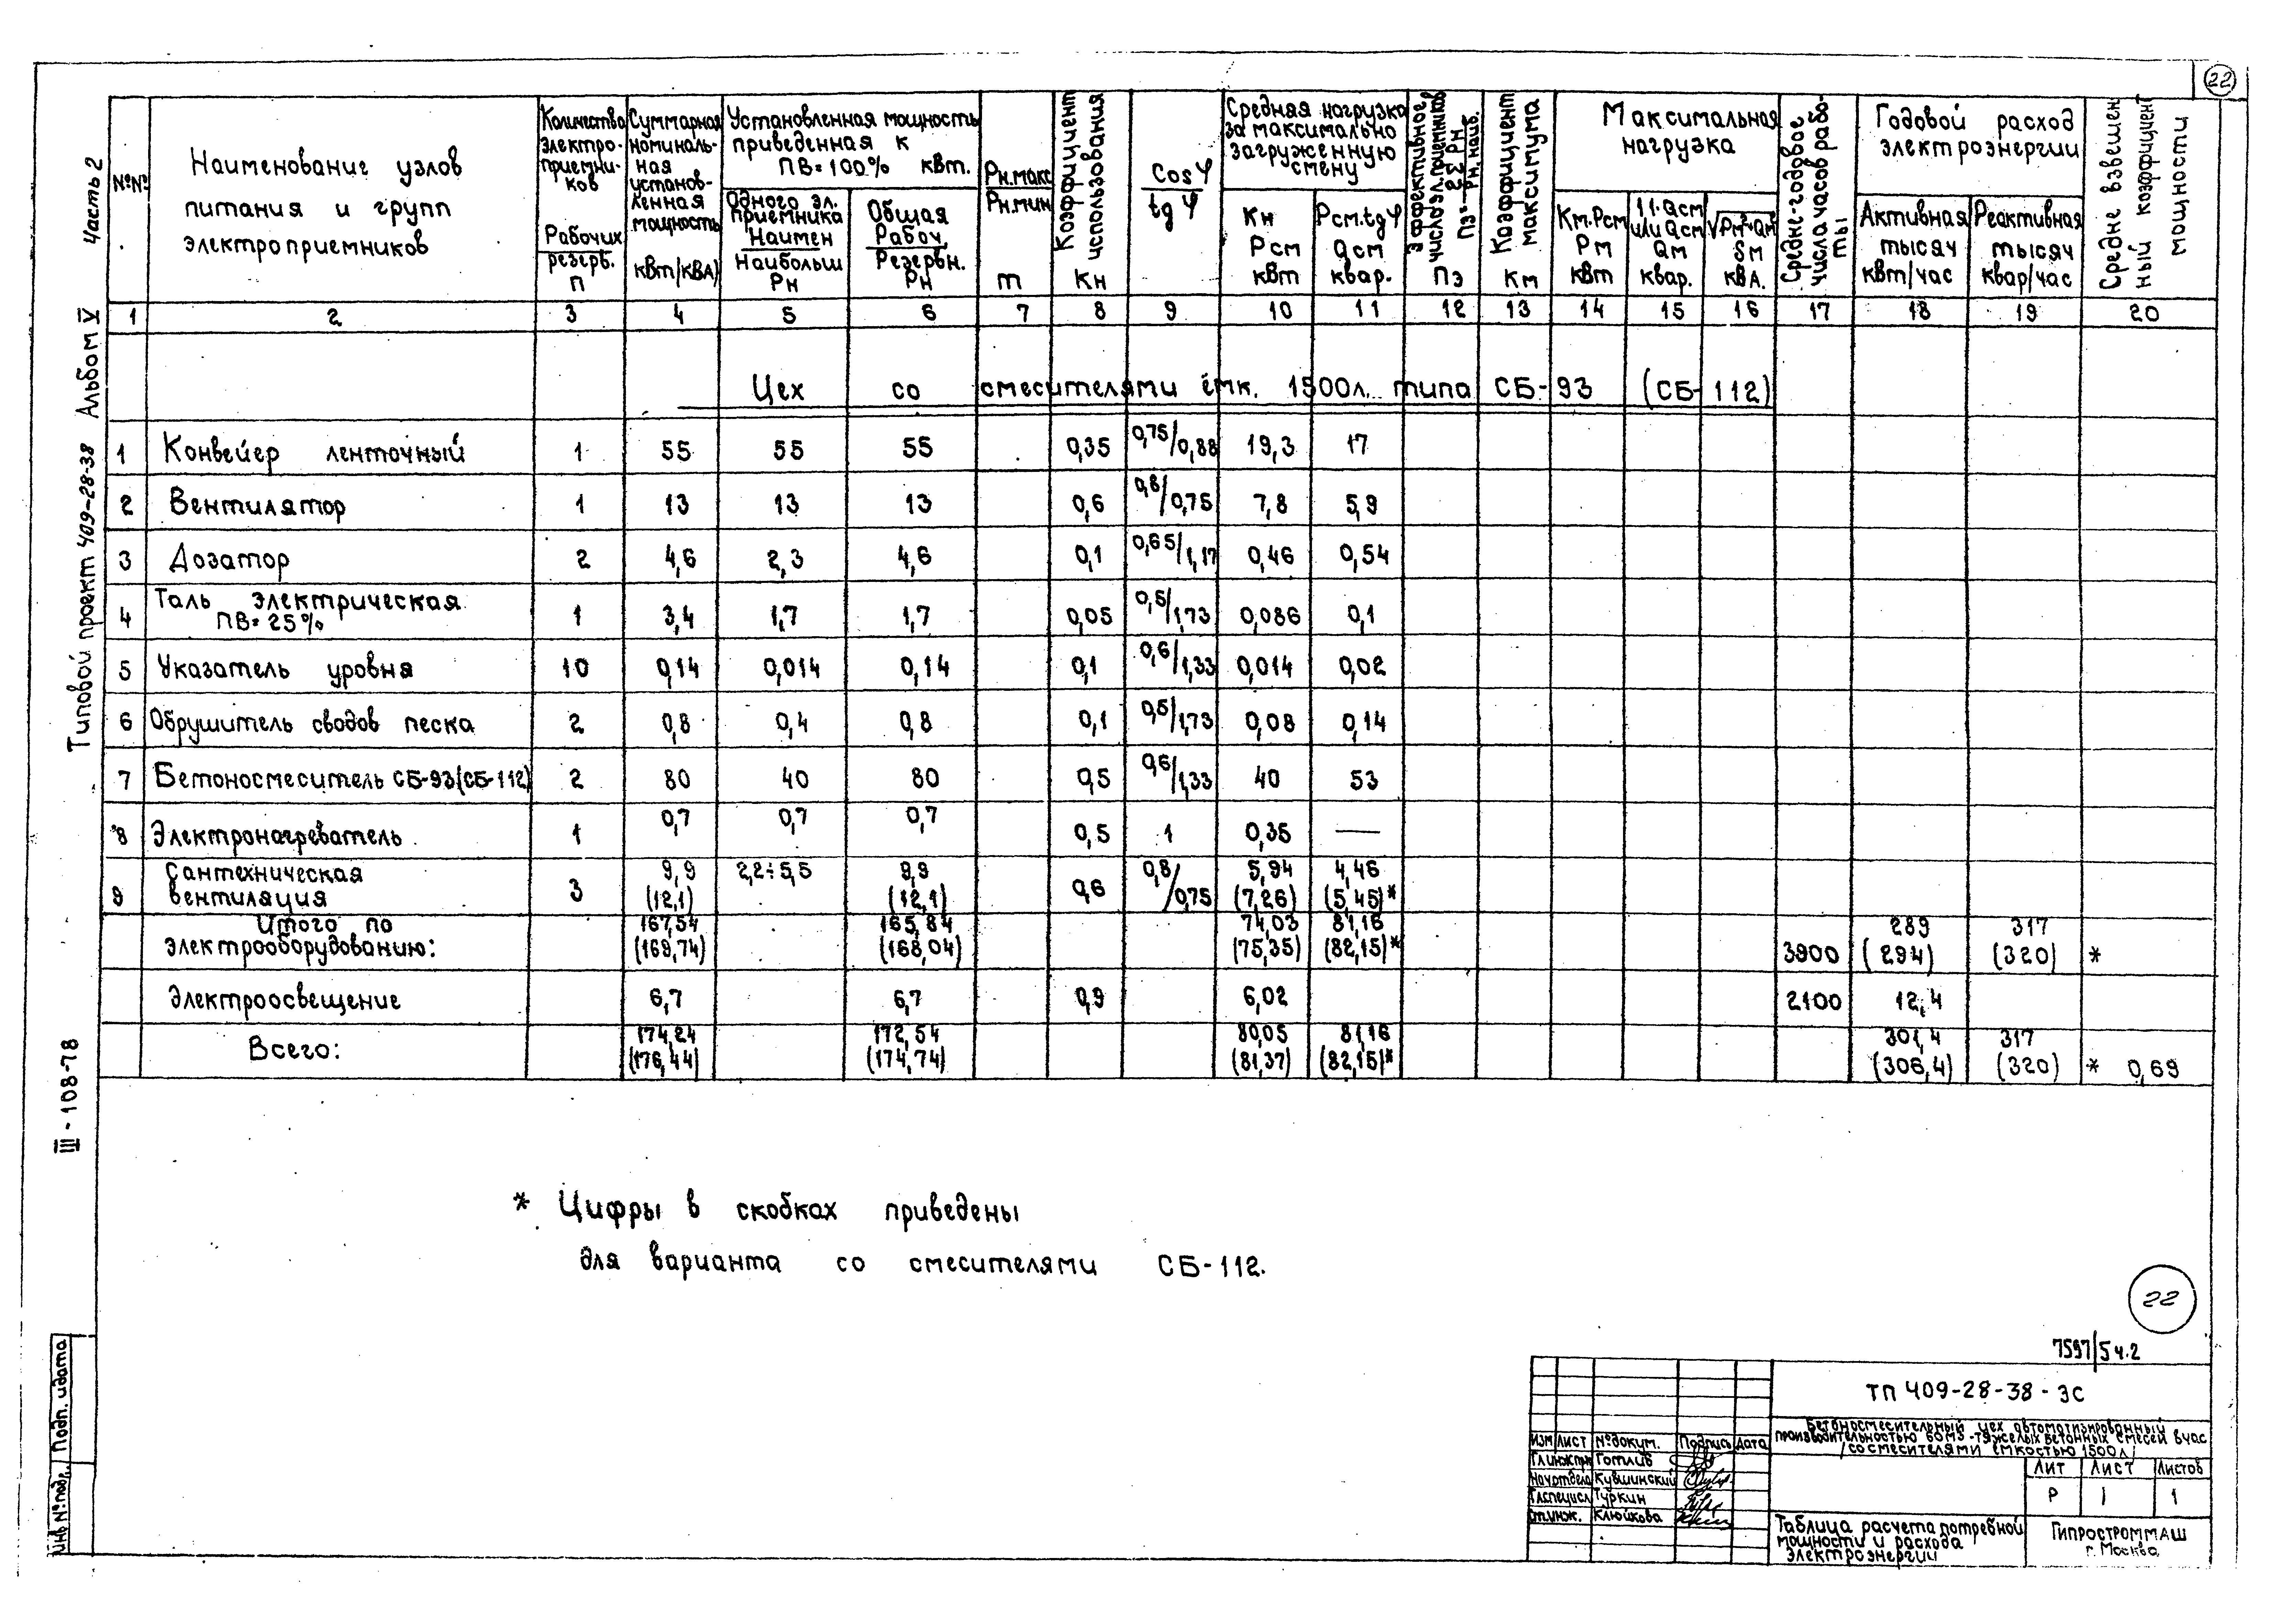 22
Часть 2
Альбом V
Типовой проект 409-28-38
III - 108-78
Инв № подл. Подп. и дата
№№
Наименование узлов питания и групп электроприемников
Количество электро-приемни-ков Рабочих резерв. п
Суммарная номиналь-ная установ-ленная мощность кВт/кВА)
Установленная мощность приведенная к ПВ=100% кВт.
Одного эл. приемника Наимен Наибольш Рн
Общая Рабоч. Резервн. Рн
Рн.макс Рн.мин m
Коэффициент использования Кн
Cosφ tgφ
Средняя нагрузка за максимально загруженную смену
Кн Рсм кВт
Рсм.tgφ Qсм квар.
Эффективное число эл.приемников Пэ= 2ΣРн Рн.наиб. Пэ
Коэффициент максимума Км
Максимальная нагрузка
Км.Рсм Рм кВт
1,1·Qсм или Qсм Qм квар.
√Рм²+Qм² Sм кВА.
Средне-годовое числа часов рабо-ты
Годовой расход электроэнергии
Активная тысяч кВт/час
Реактивная тысяч квар/час
Средне взвешен ный коэффициент мощности
1 2 3 4 5 6 7 8 9 10 11 12 13 14 15 16 17 18 19 20
Цех со смесителями ёмк. 1500л. типа СБ-93 (СБ-112)
1 Конвейер ленточный 1 55 55 55 0,35 0,75/0,88 19,3 17
2 Вентилятор 1 13 13 13 0,6 0,8/0,75 7,8 5,9
3 Дозатор 2 4,6 2,3 4,6 0,1 0,65/1,17 0,46 0,54
4 Таль электрическая ПВ=25% 1 3,4 1,7 1,7 0,05 0,5/1,73 0,086 0,1
5 Указатель уровня 10 0,14 0,014 0,14 0,1 0,6/1,33 0,014 0,02
6 Обрушитель сводов песка 2 0,8 0,4 0,8 0,1 0,5/1,73 0,08 0,14
7 Бетоносмеситель СБ-93(СБ-112) 2 80 40 80 0,5 0,6/1,33 40 53
8 Электронагреватель 1 0,7 0,7 0,7 0,5 1 0,35 —
9 Сантехническая вентиляция 3 9,9 (12,1) 2,2÷5,5 9,9 (12,1) 0,6 0,8/0,75 5,94 (7,26) 4,46 (5,45)*
Итого по электрооборудованию: 167,54 (169,74) 165,84 (168,04) 74,03 (75,35) 81,16 (82,15)* 3900 289 (294) 317 (320) *
Электроосвещение 6,7 6,7 0,9 6,02 2100 12,4
Всего: 174,24 (176,44) 172,54 (174,74) 80,05 (81,37) 81,16 (82,15)* 301,4 (306,4) 317 (320) * 0,69
* Цифры в скобках приведены
для варианта со смесителями СБ-112.
22
7597/5 ч.2
ТП 409-28-38-ЭС
Бетоносмесительный цех автоматизированный
производительностью 60м3-тяжелых бетонных смесей в час
/со смесителями ёмкостью 1500л/
Изм Лист № докум. Подпись Дата
Гл.инж.пр Готлиб
Нач.отдела Кувшинский
Гл.специал Туркин
Ст.инж. Клюйкова
Лит Лист Листов
Р 1 1
Таблица расчета потребной
мощности и расхода
электроэнергии
Гипростроммаш
г. Москва